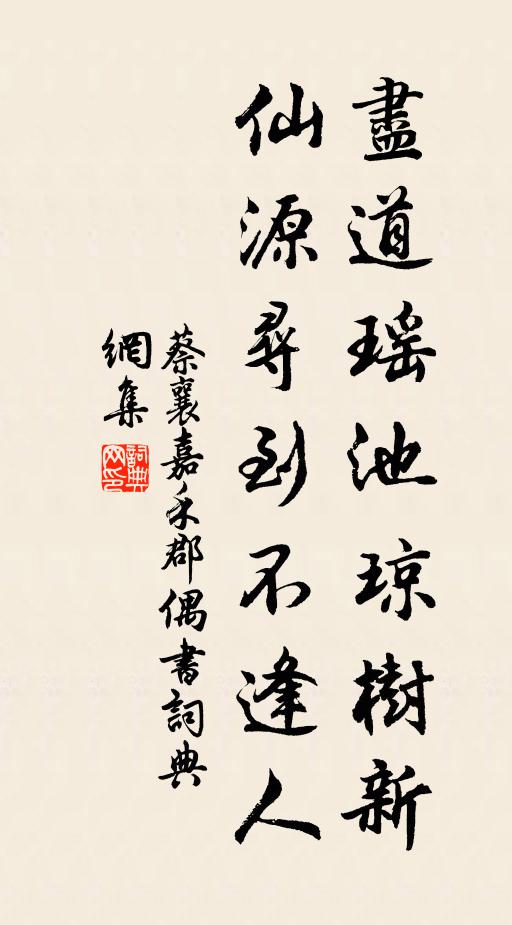 盡道瑶池琼樹新
仙源尋到不逢人
蔡襄嘉禾郡偶書詞典
網集
詞典
网印